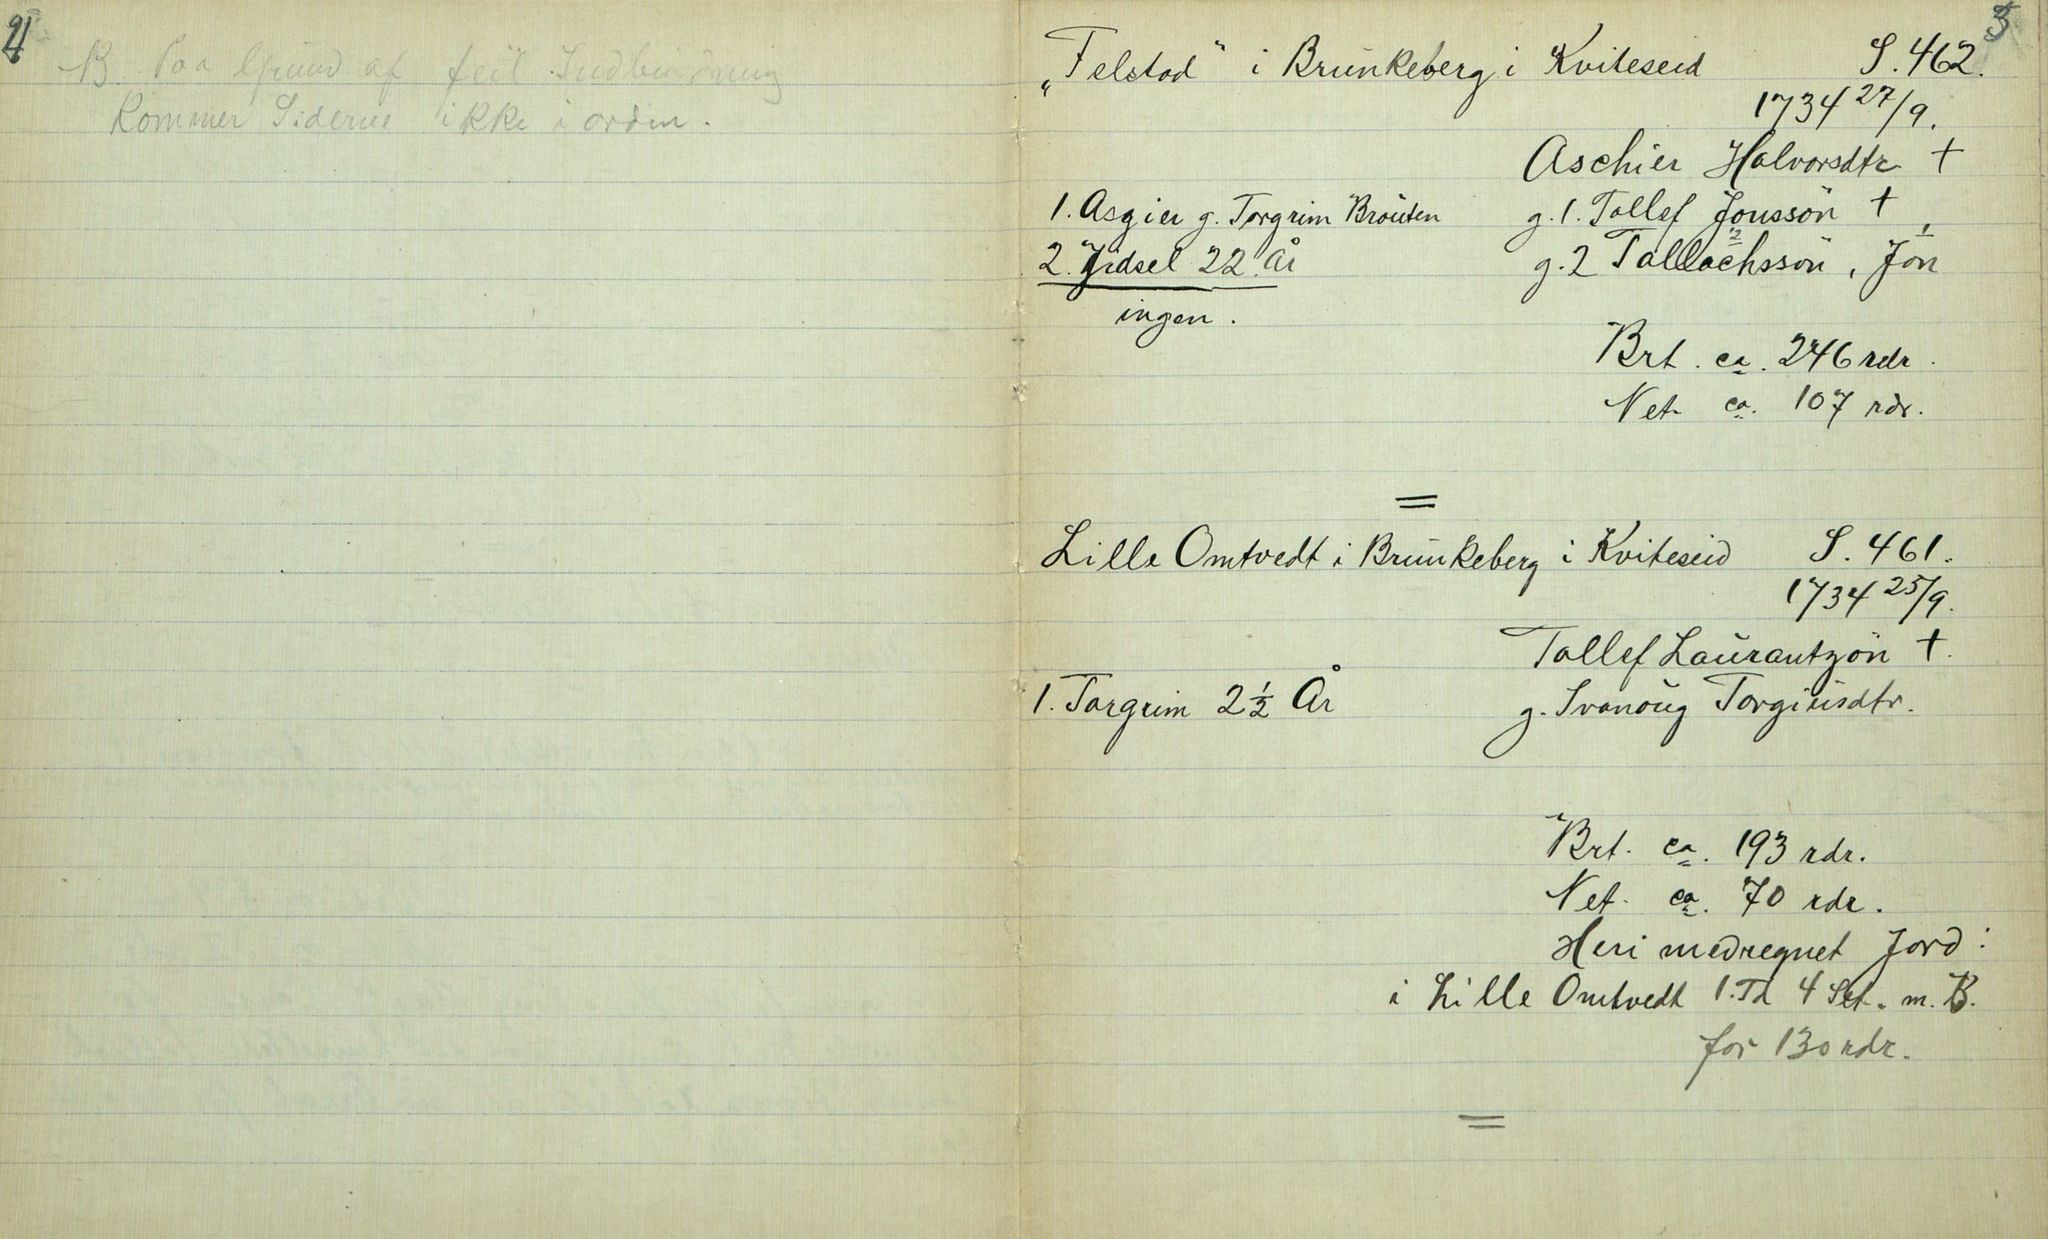 NB Paa Grund af feil Indbindning
kommer Siderne ikke i orden.
3
„Felstad" i Brunkeberg i Kviteseid S. 462.
1734 27/9.
Aschier Halvorsdtr †
1. Asgier g. Torgrim Brouten g. 1. Tollef Jonssön †
2. Jidsel 22 År g. 2 Tallachssön, Jon
ingen.
Brt. ca. 246 rdr.
Net. ca. 107 rdr.
=
Lille Omtvedt i Brunkeberg i Kviteseid S. 461.
1734 25/9.
Tollef Laurantzön †.
1. Torgrim 2½ År g. Svanoug Torgiusdtr.
Brt. ca. 193 rdr.
Net. ca. 70 rdr.
Heri medregnet Jord:
i Lille Omtvedt 1. Td 4 Set. m. B.
for 130 rdr.
=